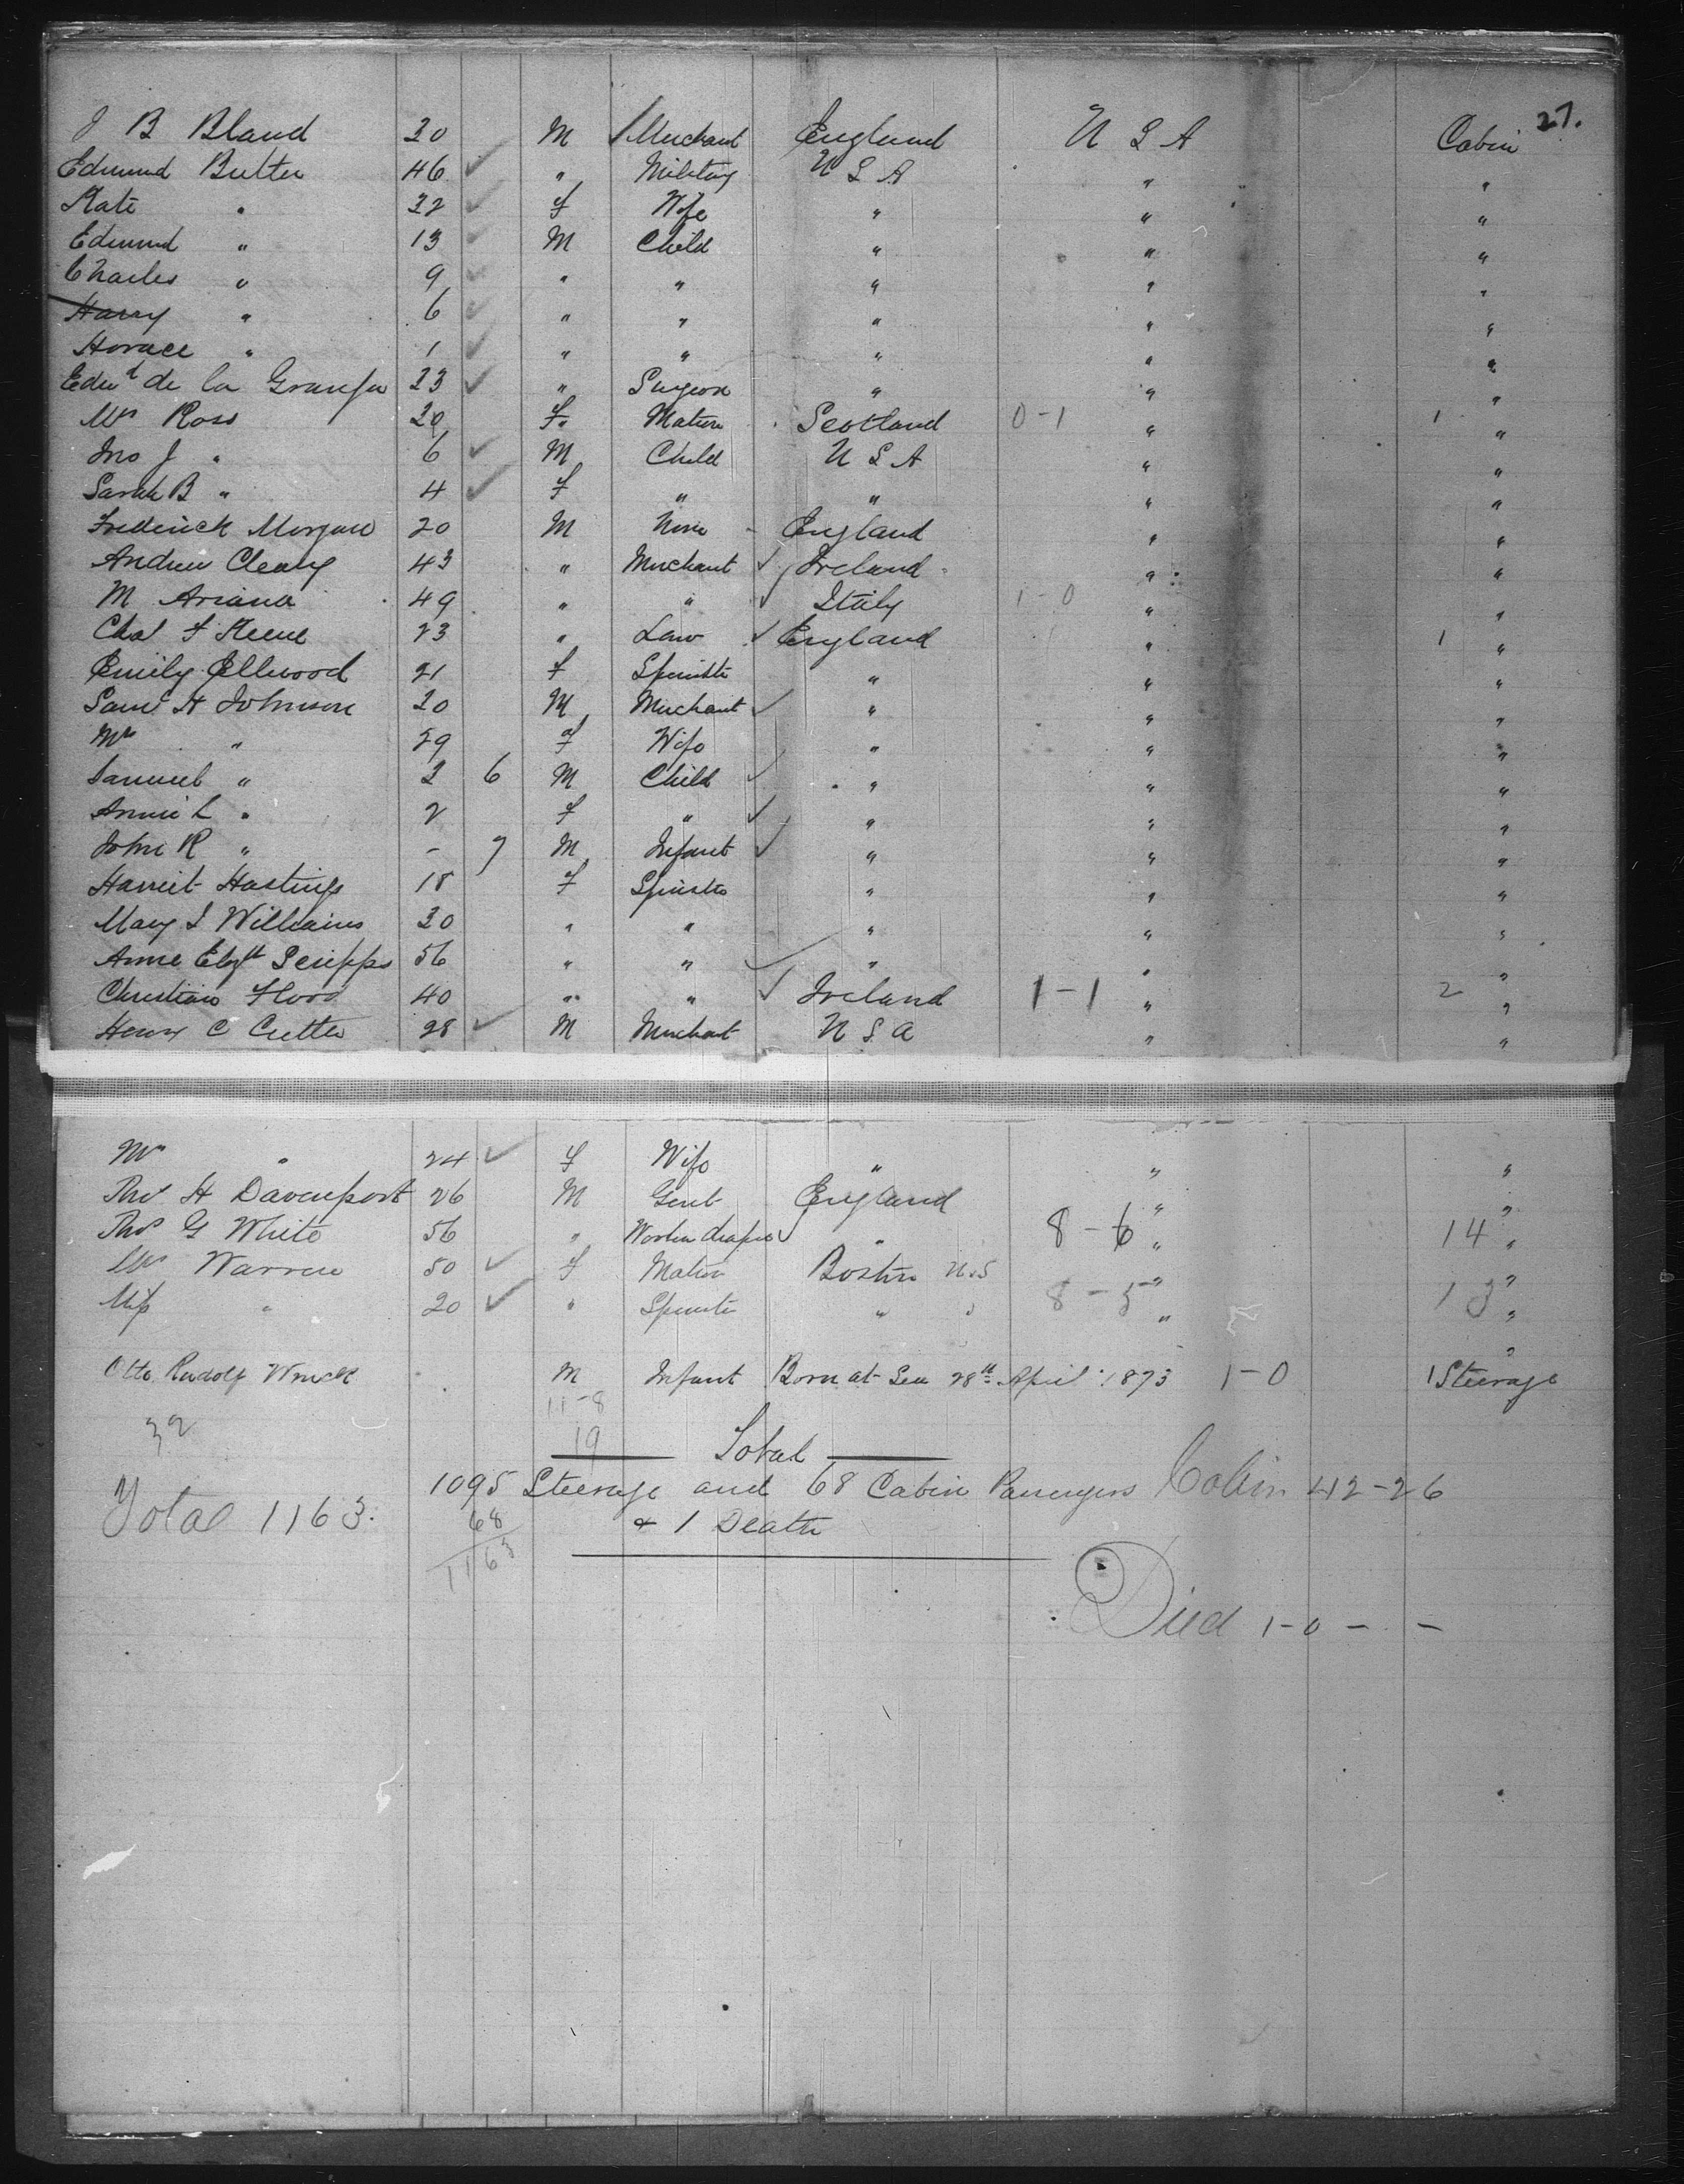 27.
J B Bland 30 M Merchant England U S A Cabin
Edmund Butler 46 " Military U S A " "
Kate " 32 f Wife " " "
Edmund " 13 M Child " " "
Charles " 9 " " " " "
Harry " 6 " " " " "
Horace " 1 " " " " "
Edwd de la Granja 33 " Surgeon " " "
Mrs Ross 29 f. Matron Scotland 0-1 " 1 "
Jno J " 6 M Child U S A " "
Sarah B " 4 f " " " "
Frederick Morgan 20 M None England " "
Andrew Cleary 43 " Merchant Ireland " "
M Ariana 49 " " Italy 1-0 " "
Chas F Keene 23 " Law England " 1 "
Emily Ellwood 21 f Spinster " " "
Saml H Johnson 30 M Merchant " " "
Mrs " 29 f Wife " " "
Samuel " 3 6 M Child " " "
Annie L " 2 f " " " "
John R " - 7 M Infant " " "
Harriet Hastings 18 f Spinster " " "
Mary J Williams 30 " " " " "
Anne Elizth Scripps 56 " " " " "
Christian Flood 40 " " Ireland 1-1 " 2 "
Henry C Cutter 28 M Merchant U S A " "
Mrs " 24 f Wife " " "
Thos H Davenport 26 M Gent England " "
Thos G White 56 " Woolen draper " 8-6 " 14 "
Mrs Warren 50 f Matron Boston U.S " "
Miss " 20 " Spinster " " 8-5 " 13 "
Otto Rudolf Wruck M Infant Born at Sea 28th April 1873 1-0 1 Steerage
11-8
32 19
Total
1095 Steerage and 68 Cabin Passengers Cabin 42-26
Total 1163. 68 & 1 Death
1163
Died 1-0 - -